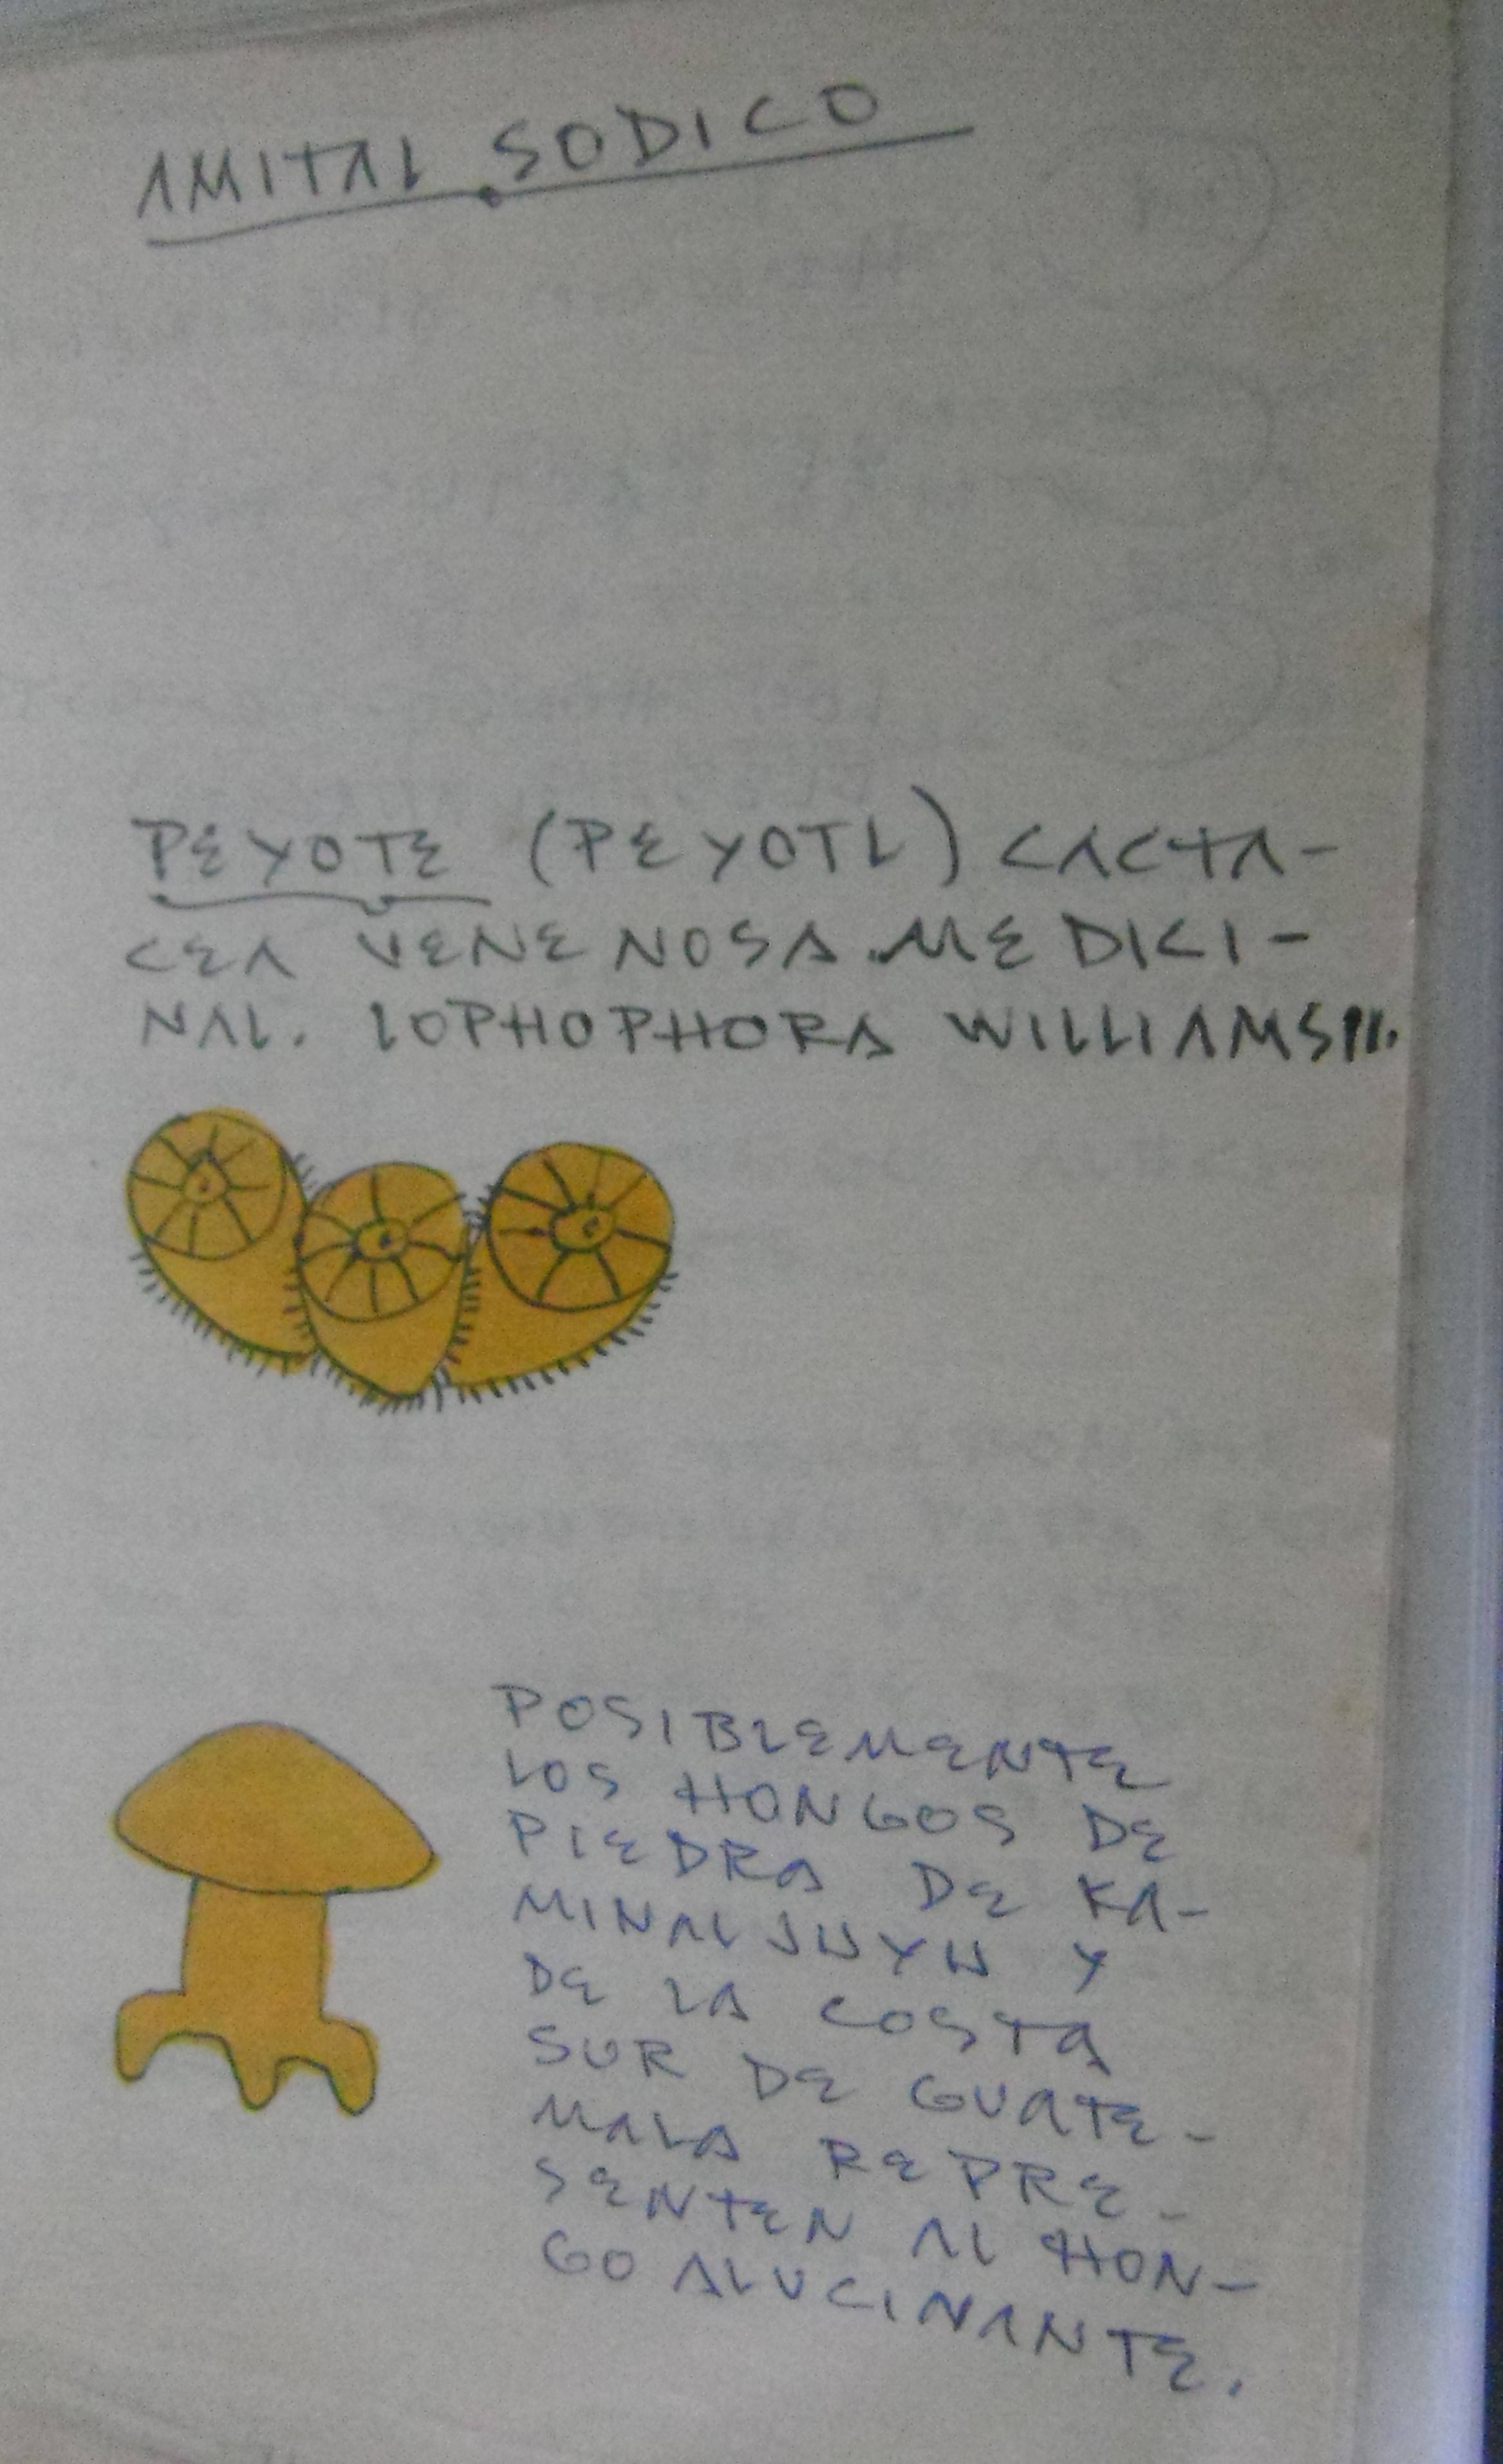 AMITAL SODICO
PEYOTE (PEYOTL) CACTA-
CEA VENENOSA MEDICI-
NAL. LOPHOPHORA WILLIAMSII.
POSIBLEMENTE
LOS HONGOS DE
PIEDRA DE KA-
MINALJUYU Y
DE LA COSTA
SUR DE GUATE-
MALA REPRE-
SENTEN AL HON-
GO ALUCINANTE.